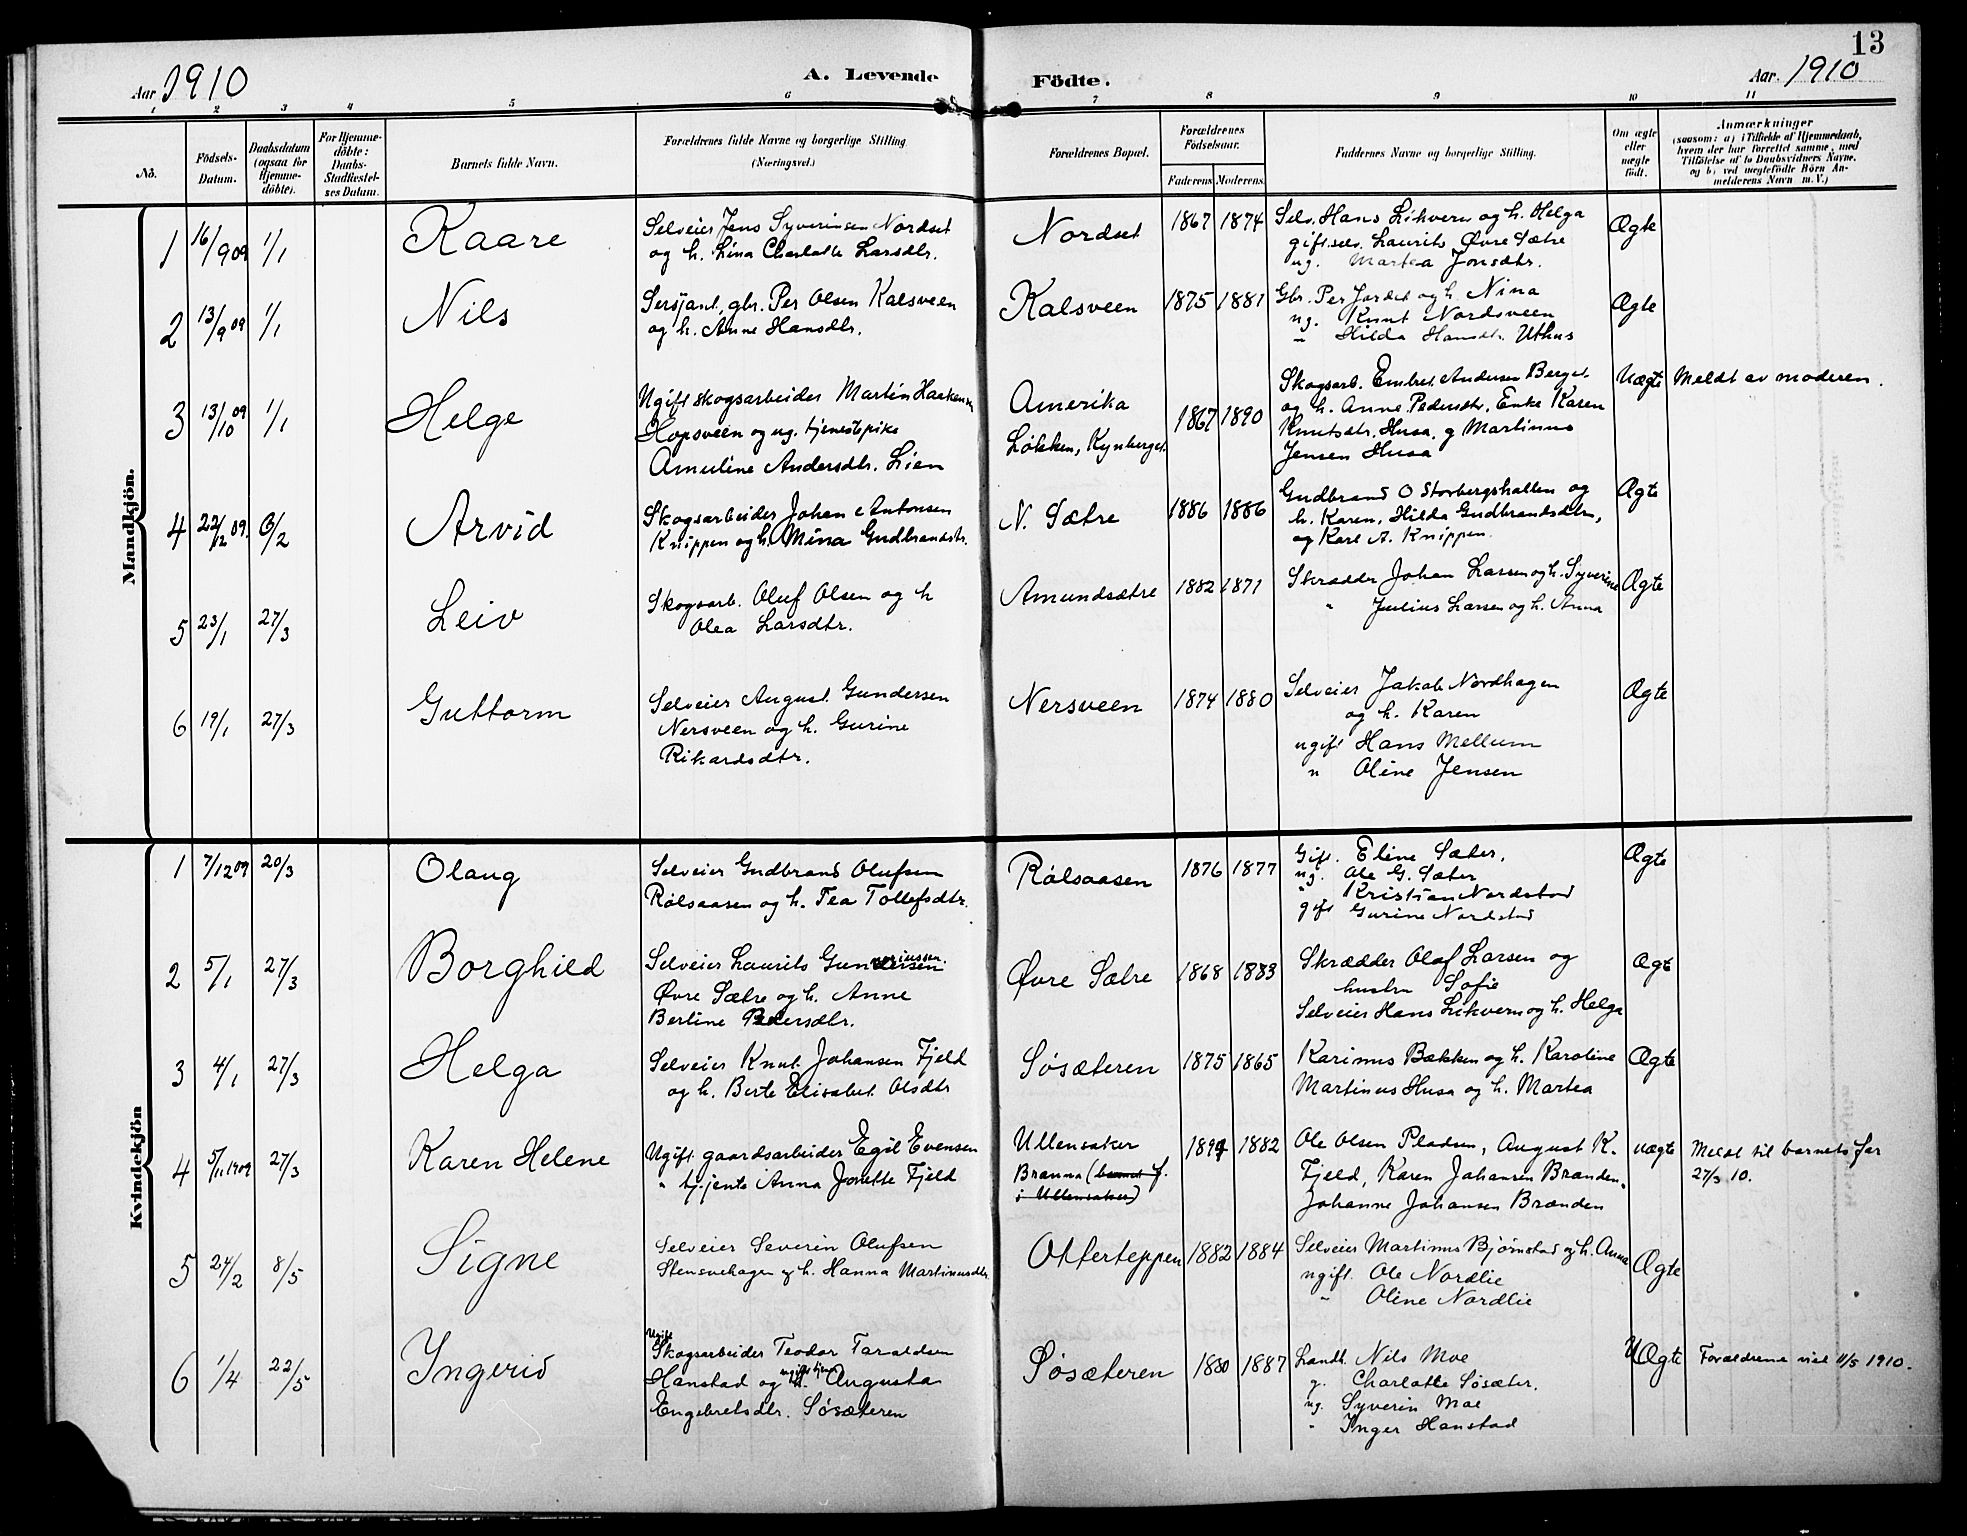 13
Aar 1910
A. Levende Födte.
Aar. 1910
1 2 3 4 5 6 7 8 9 10 11
No.
Födsels-Datum.
Daabsdatum (ogsaa for Hjemme-döbte).
For Hjemme-döbte: Daabs-Stadfæstel-ses Datum.
Barnets fulde Navn.
Forældrenes fulde Navne og borgerlige Stilling (Næringsvei.)
Forældrenes Bopæl.
Forældrenes Födselsaar.
Faderens Moderens
Faddernes Navne og borgerlige Stilling.
Om ægte eller uægte födt.
Anmærkninger
(saasom: a) i Tilfælde af Hjemmedaab,
hvem der har forrettet samme, med
Tilföielse af to Daabsvidners Navne,
og b) ved uægtefödte Börn An-
melderens Navn m. V.)
Mandkjön.
1 16/9 09 1/1 Kaare
Selveier Jens Syverinsen Nordset
og h. Lina Charlotte Larsdtr.
Nordset 1867 1874
Selv. Hans Likvern og h. Helga
gift selv. Laurits Øvre Sætre
ug. Martea Jonsdtr.
Ægte
2 13/9 09 1/1 Nils
Sersjant, gbr. Per Olsen Kalsveen
og h. Anne Hansdtr.
Kalsveen 1875 1881
Gbr. Per Jordet og h. Nina
ug. Knut Nordsveen
" Hilda Hansdtr. Uthus
Ægte
3 13/10 09 1/1 Helge
Ugift skogsarbeider Martin Haakensen
Hopsveen og ug. tjenestepike
Amuline Andersdtr. Lien
Amerika
Løkken, Kynberget.
1867 1890
Skogsarb. Embret Andersen Berget
og h. Anne Pedersdtr. Enke Karen
Knutsdtr. Husa, g Martinus
Jensen Husa
Uægte Meldt av moderen.
4 22/12 09. 6/2 Arvid
Skogsarbeider Johan Antonsen
Knippen og h. Mina Gudbrandsdtr.
N. Sætre 1886 1886
Gudbrand O Storbergshallen og
h. Karen, Hilda Gudbrandsdtr,
og Karl A. Knippen.
Ægte
5 23/1 27/3 Leiv
Skogsarb. Oluf Olsen og h
Olea Larsdtr.
Amundsætre 1882 1871
Skrædder Johan Larsen og h. Syverine
" Julius Larsen og h. Anna
Ægte
6 19/1 27/3 Guttorm
Selveier August Gundersen
Nersveen og h. Gurine
Rikardsdtr.
Nersveen 1874 1880
Selveier Jakob Nordhagen
og h. Karen
ugift Hans Mellum
" Oline Jensen
Ægte
Kvindekjön
1 7/12 09 20/3 Olaug
Selveier Gudbrand Olufsen
Rølsaasen og h. Tea Tollefsdtr.
Rølsaasen 1876 1877
Gift. Eline Sæter,
ug. Ole G. Sæter
" Kristian Nordstad
gift Gurine Nordstad
Ægte
2 5/1 27/3 Borghild
Selveier Laurits
Øvre Sætre og h. Anne
Berline Pedersdtr.
Øvre Sætre 1868 1883
Skrædder Olaf Larsen og
hustru Sofie
Selveier Hans Likvern og h. Helga
Ægte
3 4/1 27/3 Helga
Selveier Knut Johansen Fjeld
og h. Berte Elisabet Olsdtr
Søsæteren 1875 1865
Karinus Bækken og h. Karoline
Martinus Husa og h. Martea
Ægte
4 5/11 1909 27/3 Karen Helene
Ugift gaardsarbeider Egil Evensen
" tj.jente Anna Jonette Fjeld
Ullensaker
Brænna (barnet f.
i Ullensaker)
1894 1882
Ole Olsen Pladsen, August K.
Fjeld, Karen Johansen Brænden,
Johanne Johansen Brænden
uægte
Meldt til barnets far
27/3 10.
5 24/2 8/5 Signe
Selveier Severin Olufsen
Stensvehagen og h. Hanna Martinusdtr.
Otterteppen 1882 1884
Selveier Martinus Bjørnstad og h. Anna
ugift. Ole Nordlie
" Oline Nordlie
Ægte
6 1/4 22/5 Ingerid
Ugift
Skogsarbeider Teodor Taraldsen
Hanstad og ugift Augusta
Engebretsdtr. Søsæteren
Søsæteren 1880 1887
Landh. Nils Moe
g. Charlotte Søsæter.
ug. Syverin Moe
" Inger Hanstad
UÆgte Forældrene viet 11/5 1910.